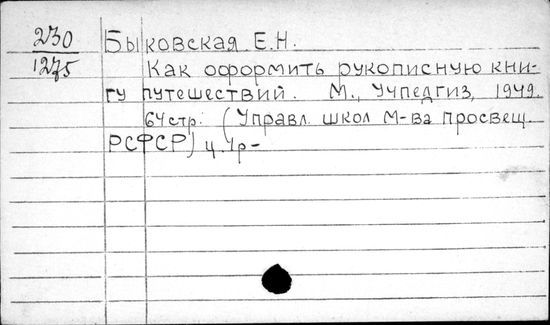 230 Быковская Е.Н.
1275 Как оформить рукописную кни-
гу путешествий. М., Учпедгиз, 1949.
64 стр. (Управл. школ М-ва просвещ.
РСФСР) ц. 1р-